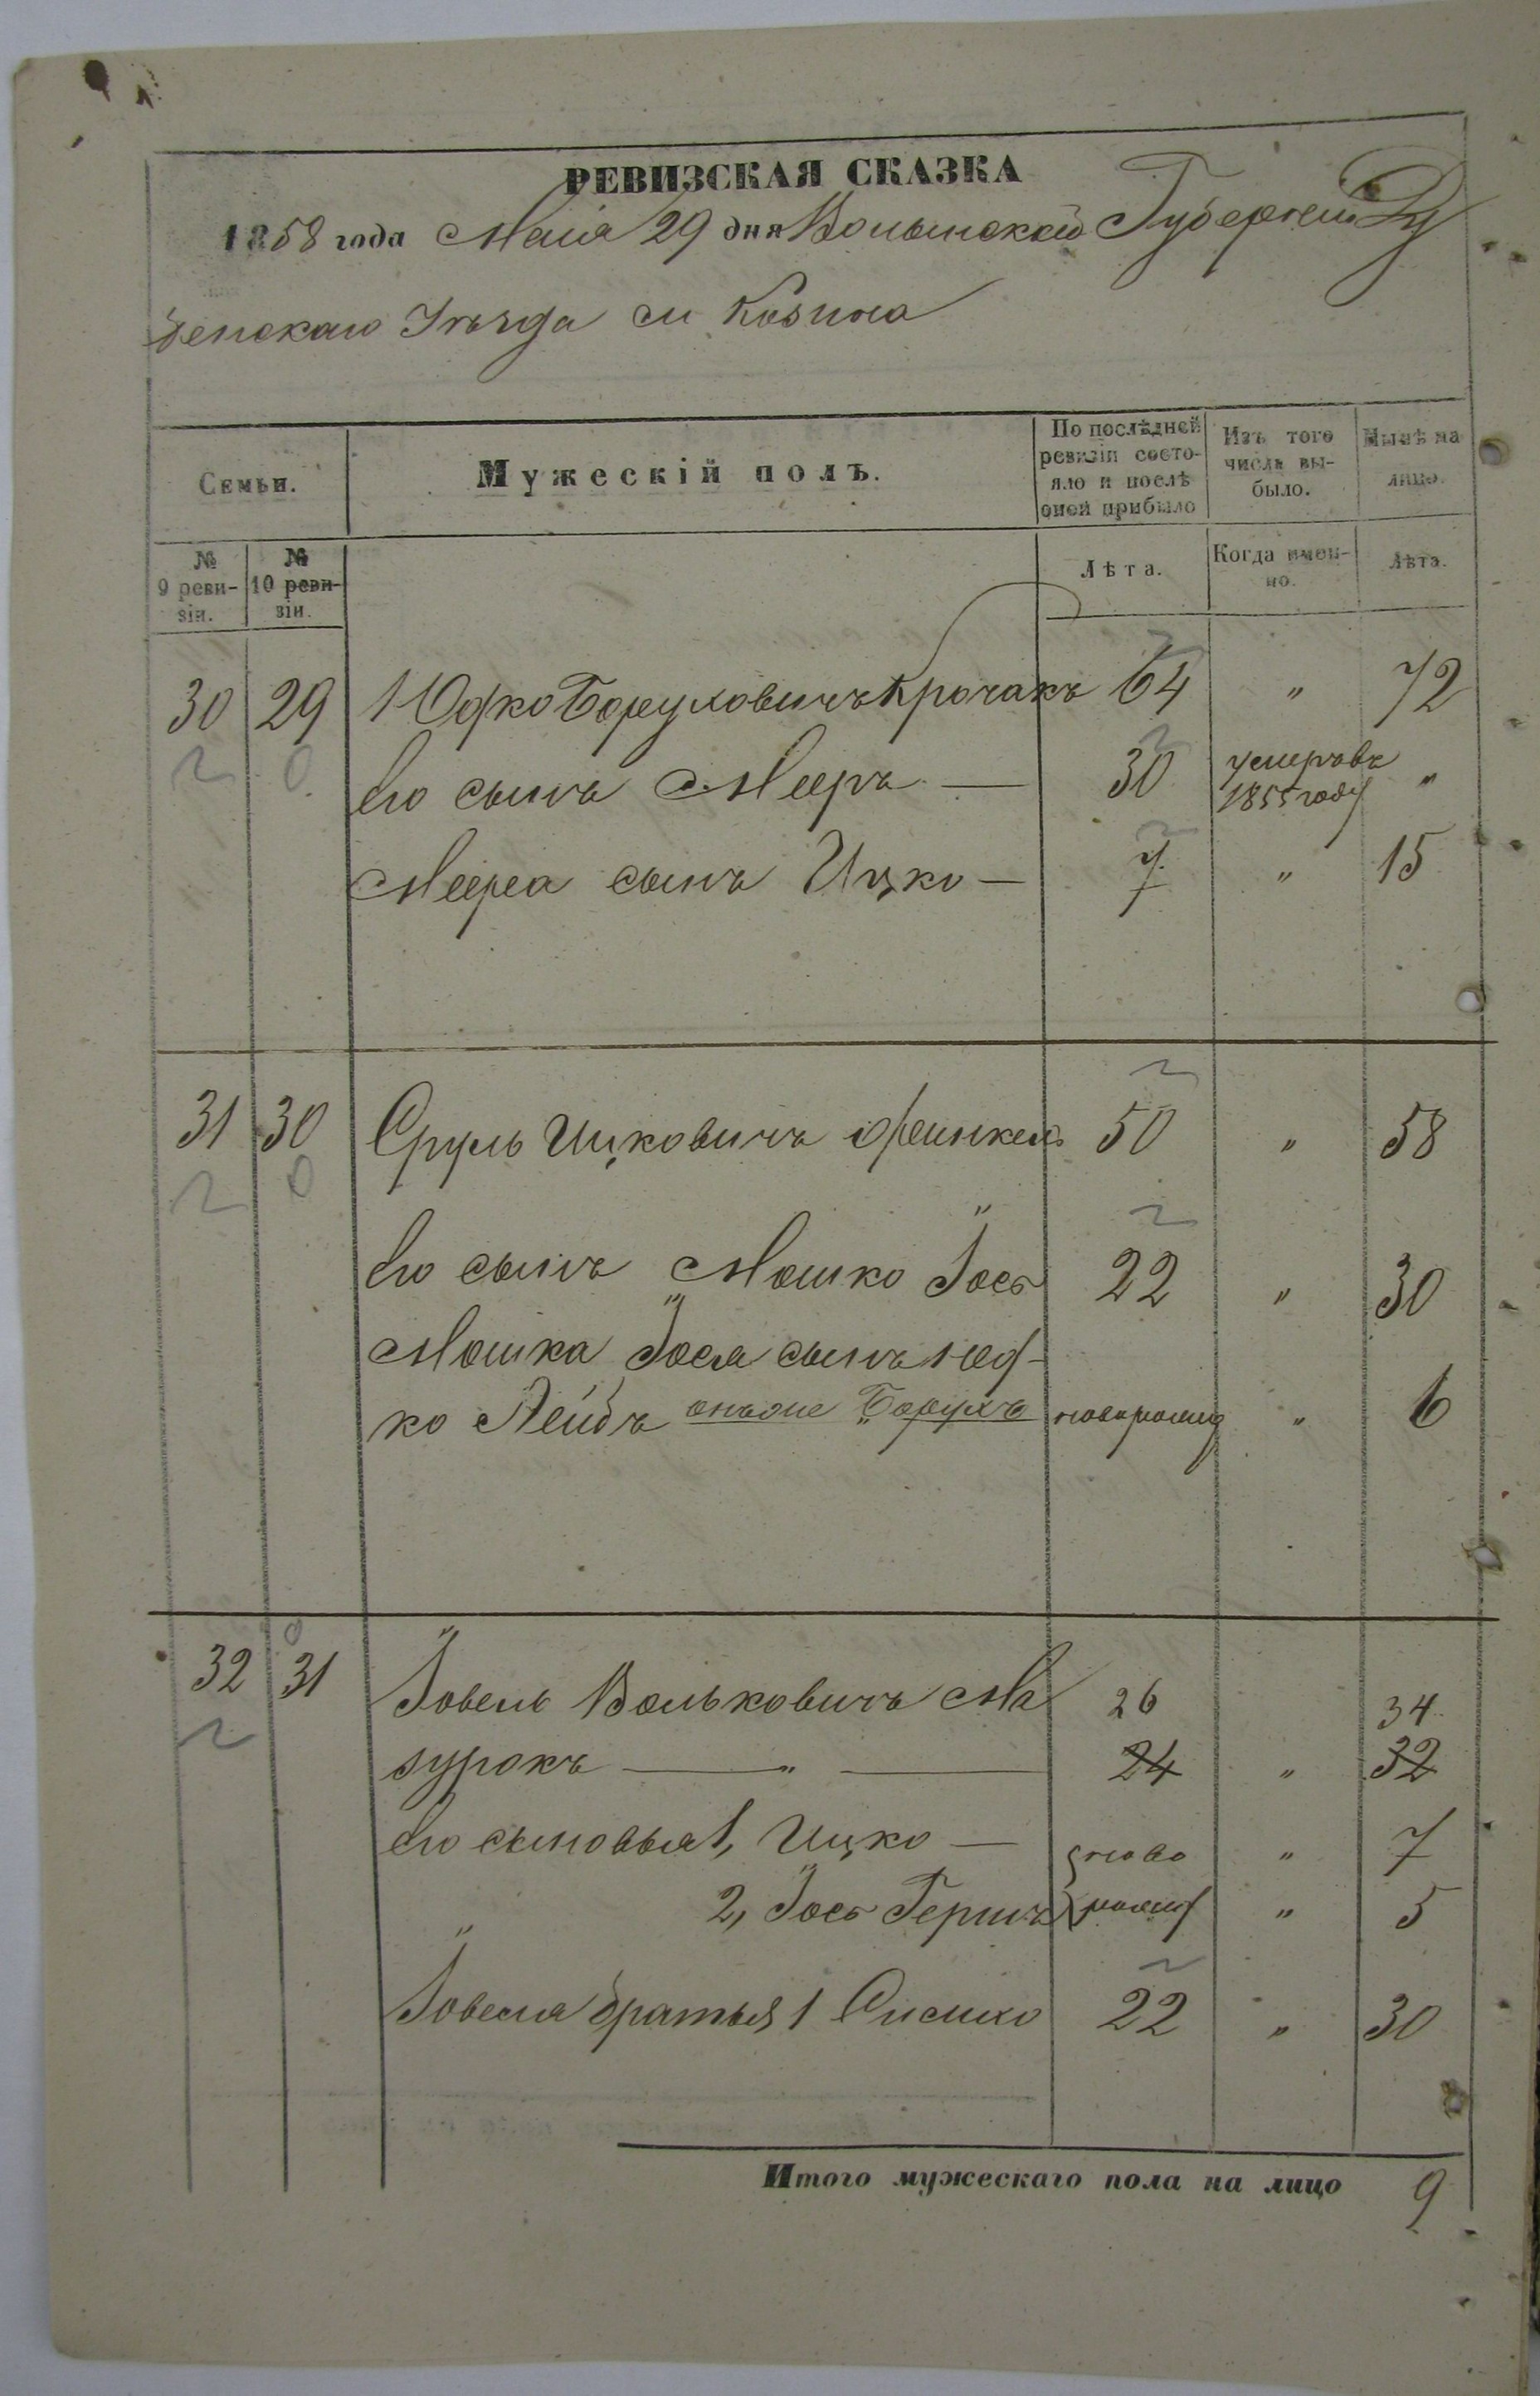 РЕВИЗСКАЯ СКАЗКА
1858 года Маія 29 дня Волынской Губерніи Ду
бенскаго Уѣзда м Козина
Семьи.
Мужескій полъ.
По послѣдней ревизіи состояло и послѣ оной прибыло
Изъ того числа выбыло.
Нынѣ на лицо.
№ 9 ревизіи.
№ 10 ревизіи.
Лѣта.
Когда именно.
Лѣта.
30 29 Юдко Боруховичъ Крочакъ 64 " 72
его сынъ Мееръ — 30 умеръ въ 1855 году "
Меера сынъ Ицко — 7 " 15
31 30 Сруль Ицковичъ Френкель 50 " 58
его сынъ Мошко Іось 22 " 30
Мошка Іося сынъ Юд-
ко Лейбъ онъ же Борухъ новорожд " 6
32 31 Іовель Вольковичъ Ма 26 34
зурокъ — " — 24 " 32
его сыновья 1, Ицко — ново " 7
2, Іось Гершъ рожд " 5
Іовеля братья 1 Сисихо 22 " 30
Итого мужескаго пола на лицо 9